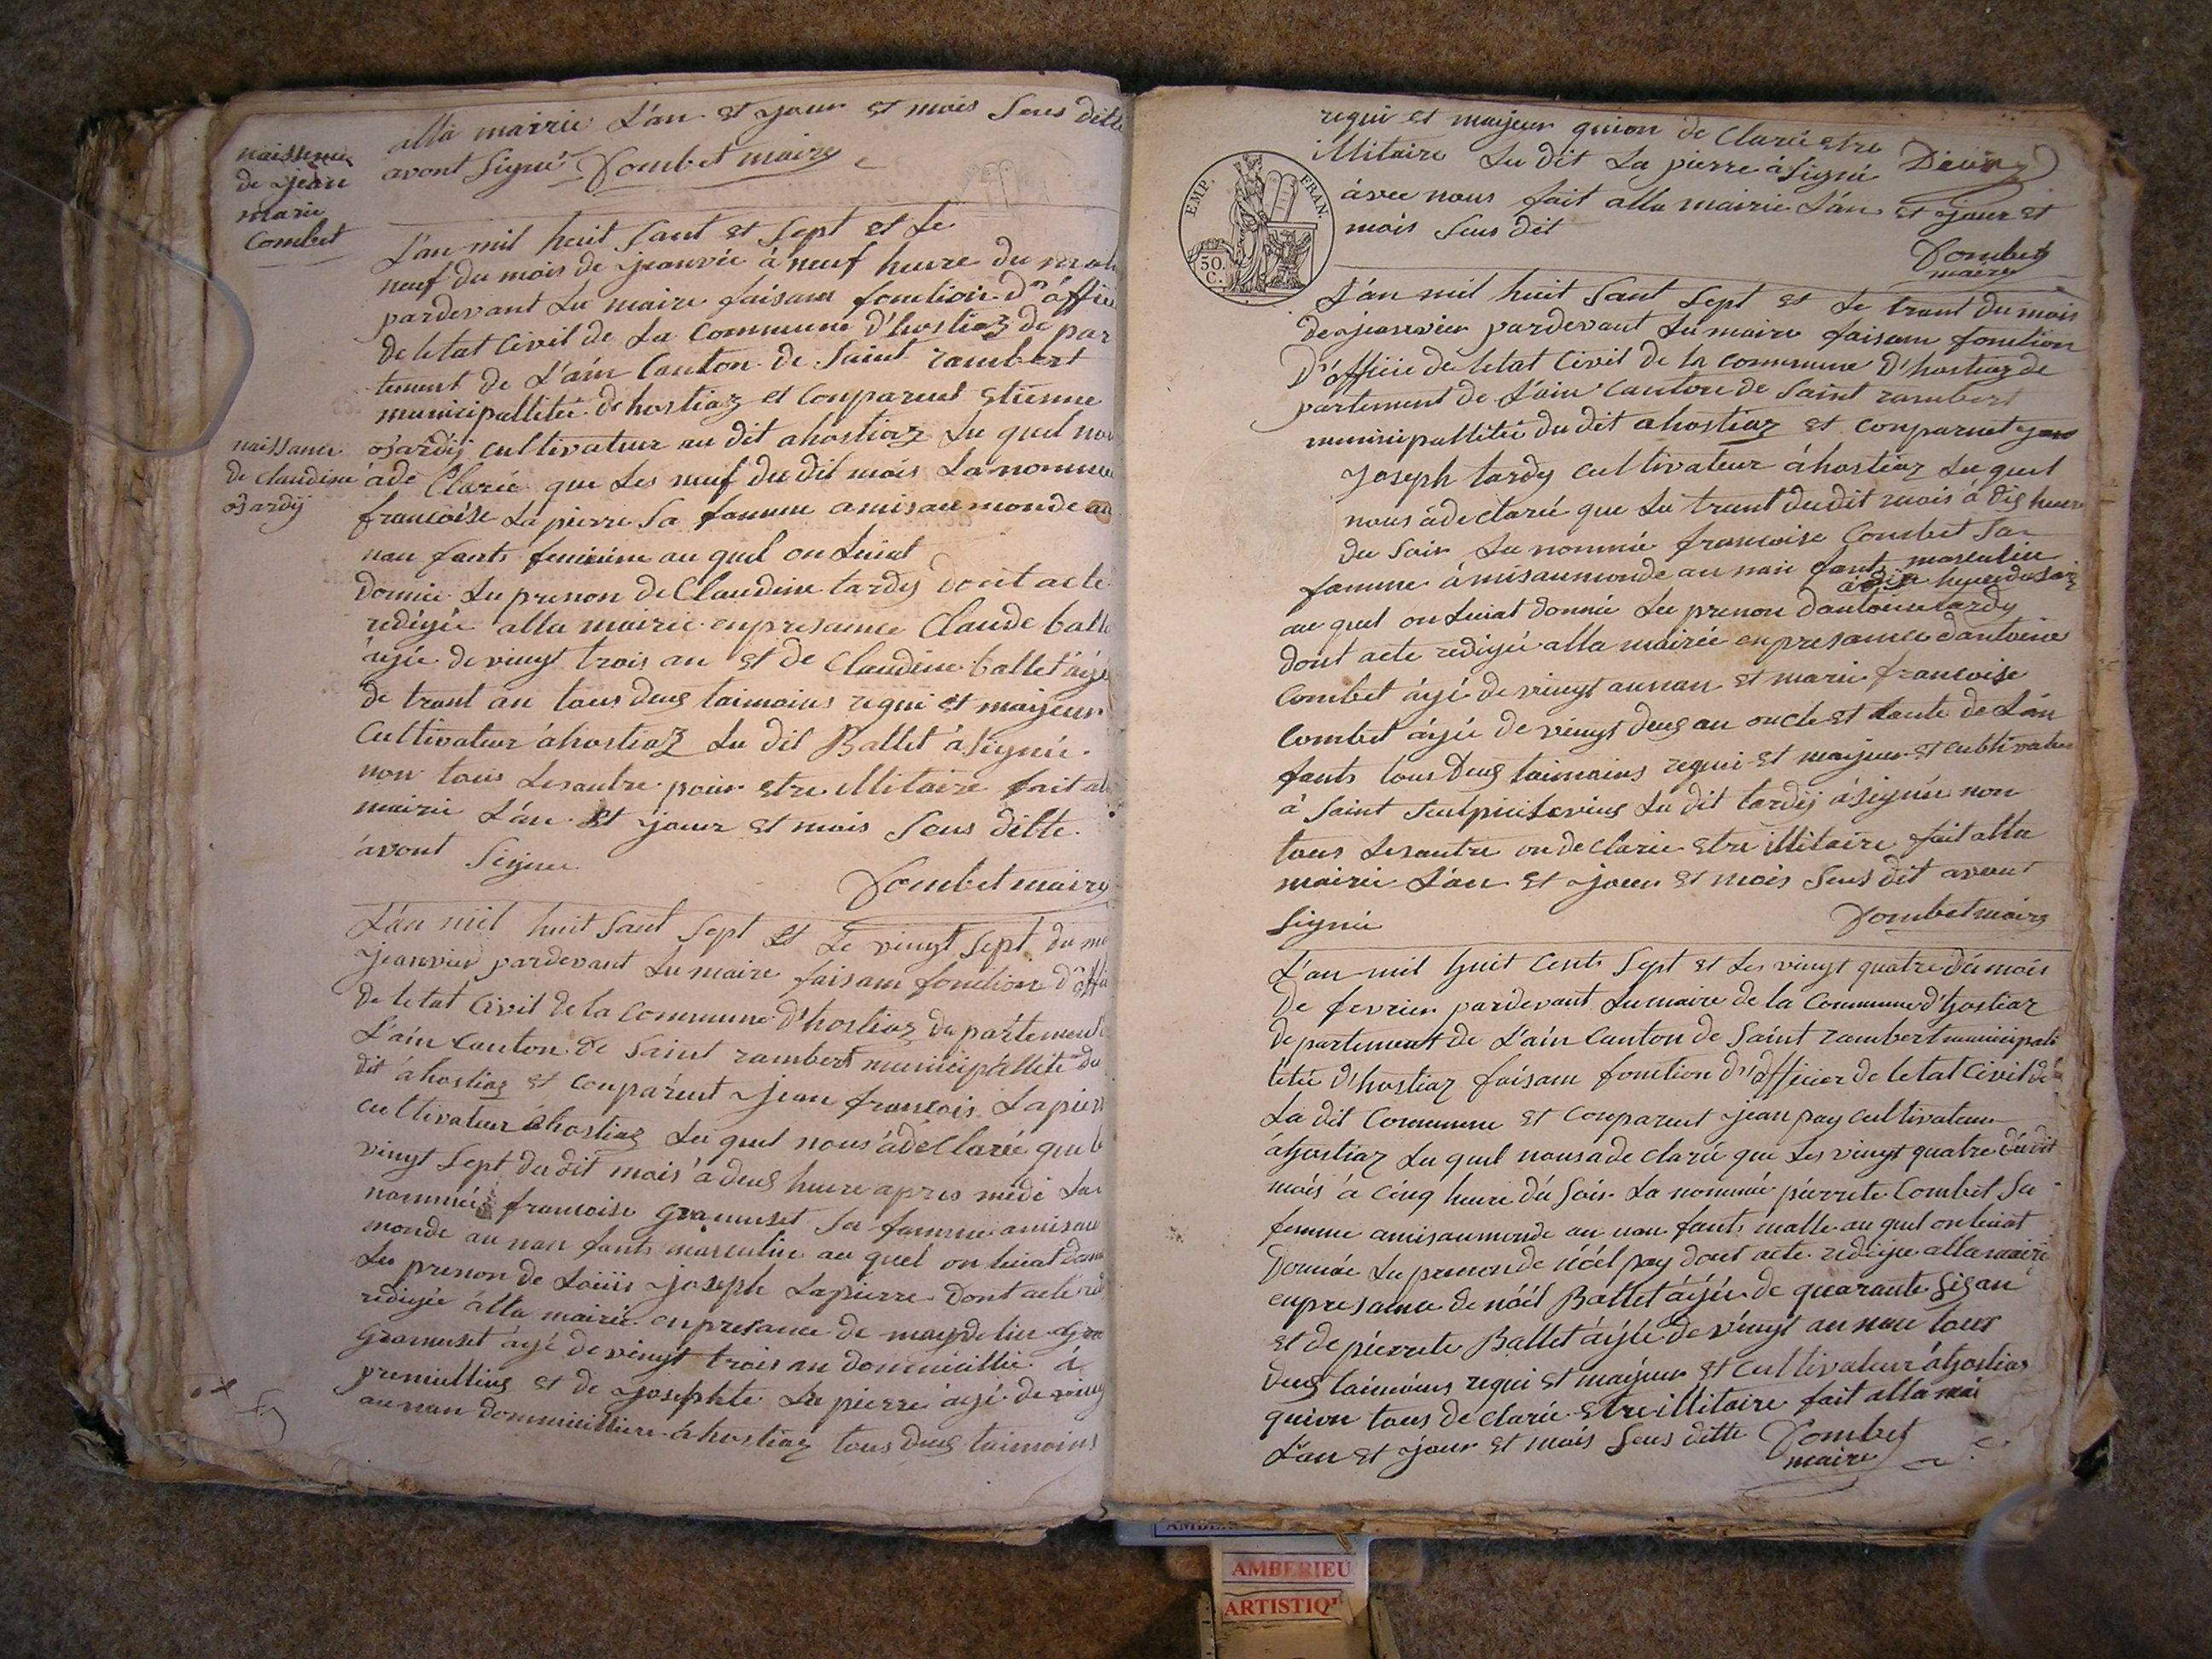 alla mairie L'an et jour et mois Sus ditte
avont Signé Combet maire
naissence
de jean
marie
Combet
L'an mil huit Sant et Sept et Le
neuf du mois de jeanvié à neuf heure du
pardevant Lu maire faisant fonction D'
de letat Civil de La Commune D'hostiaz de par
tement de L'ain Canton de Saint rambert
municipallitée d'hostiaz et Conparent etienne
naissance
de claudine
tardij
tardij cultivateur au dit ahostiaz Lu quel nou
à de Clarée que Les neuf du dit mois La nommée
francoise Lapierre Sa famme amisau monde au
nan fants feminine au quel on Luiat
Donnée Lu prenon de Claudine tardy Dont acte
redigée alla mairie enpresance Claude balle
âgée de vingt trois an et de Claudine ballet âgé
de trant an tous deus taimoins requi et majeur
Cultivateur àhostiaz Lu dit Ballet àsignée
non tous Lesautre pour etre illitaire fait all
mairie L'an et jour et mois Sus ditte
avont Signée
Combet maire
L'an mil huit Sant Sept et Le vingt Sept du mo
jeanvier pardevant Lu maire faisant fonction D'offi
de letat Civil de la Commune d'hostiaz du partement
L'ain Canton de Saint rambert municipallité du
dit à hostiaz et Conparent jean francois Lapier
cultivateur àhostiaz Lu quel nous àdeClarée que l
vingt Sept du dit mois à deus heure apres midi La
nommée francoise gramuset Sa famme amisau
monde au nan fants masculin au quel on luiat donn
Lu prenon de Loüis joseph Lapierre Dont acte
redigée alla mairie enpresance de
gramuset âgé de vingt trois an dommicillié à
premillieu et de josephte La pierre âgé de vingt
au nan dommicillière àhostiaz tous deus taimoins
requi et majeur quion de Clarée etre
illitaire Lu dit La pierre àsigné
avec nous fait alla mairie L'an et jour et
mois Sus dit
EMP. FRAN.
50. C.
Combet
maire
L'an mil huit Sant Sept et Le trant du mois
de jeanvier pardevant Lu maire faisant fonction
D'officié de letat Civil de la Commune D'hostiaz de
partement de L'ain Canton de Saint rambert
municipallitée du dit ahostiaz et Conparuet
joseph tardy cultivateur àhostiaz Lu quel
nous àdeclaré que Lu trant du dit mois à dis heure
du Soir La nommée francoise Combet Sa
famme àmisaumonde au nan fants masculin
à dix heure du Soir
au quel on Luiat donnée Lu prenon dantoine tardy
dont acte redigée alla mairie enpresance dantoine
Combet âgé de vingt aunan et marie francoise
Combet âgée de vingt deus an oncle et tante de L'an
fants tous Deus taimoins requi et majeur et cultivateur
à Saint Sulpice Levieus Lu dit tardij àsignée non
tous Lesautre on de clarée etre illitaire fait alla
mairie L'an et jour et mois Sus dit avont
Signée Combet maire
L'an mil huit Cents Sept et Les vingt quatre dú mois
De fevrier pardevant Lu maire de la Commune d'hostiaz
departement de L'ain Canton de Saint rambert municipali
tétée d'hostiaz faisant fonction D'officier de letat Civil de
La dit Commune et Conparent jean pay cultivateur
àhostiaz Lu quel nousade claré que Les vingt quatre dú dit
mois à Cinq heure dú Soir La nommée pierrete Combet Sa
femme amisaumonde au nan fants malle au quel onluiat
Donnée Lu prenon de nöel pay dont acte redigée allamairie
enpresance de nöel Ballet âgée de quarante Sis an
et de pierrete Ballet âgée de vingt aunan tous
Deus taimoins requi et majeur et Cultivateur àhostiaz
quion tous de clarée etre illitaire fait alla mai
L'an et jour et mois Sus ditte Combet
maire
AMBERIEU
ARTISTIQ